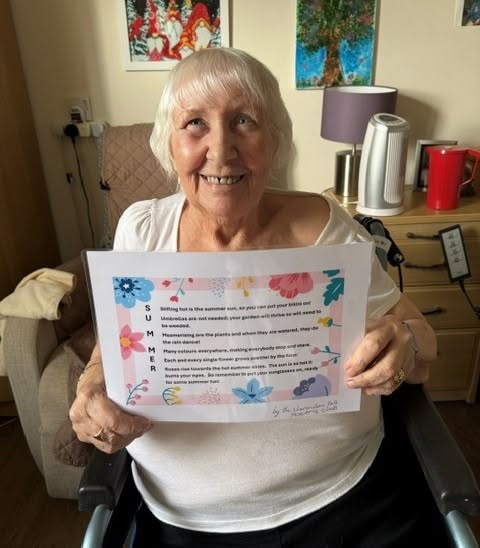 S
U
M
M
E
R
Stifling hot is the summer sun, so you can put your bikini on!
Umbrellas are not needed; your garden will thrive so will need to
be weeded.
Mesmerising are the plants and when they are watered, they do
the rain dance!
Many colours everywhere, making everybody stop and stare.
Each and every single flower grows prettier by the hour.
Roses rise towards the hot summer skies. The sun is so hot it
burns your eyes. So remember to put your sunglasses on, ready
for some summer fun!
by the Clarendon Hall
Poetry Club